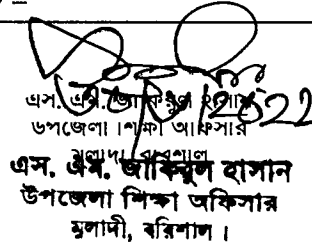 এস. এম. জাকিরুল হাসান
উপজেলা শিক্ষা অফিসার
মুলাদী, বরিশাল
এস. এম. জাকিরুল হাসান
উপজেলা শিক্ষা অফিসার
মুলাদী, বরিশাল।